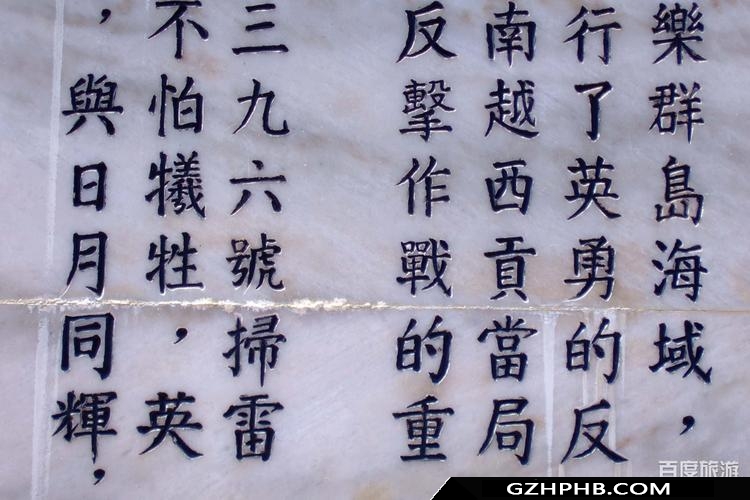 樂群島海域，
行了英勇的反
南越西貢當局
反擊作戰的重
三九六號掃雷
不怕犧牲，英
，與日月同輝，
百度旅游
GZHPHB.COM